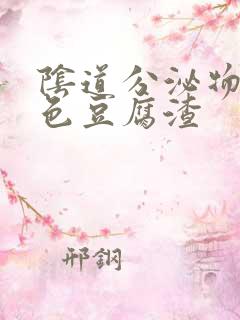 陰道分泌物
色豆腐渣
邢鋼